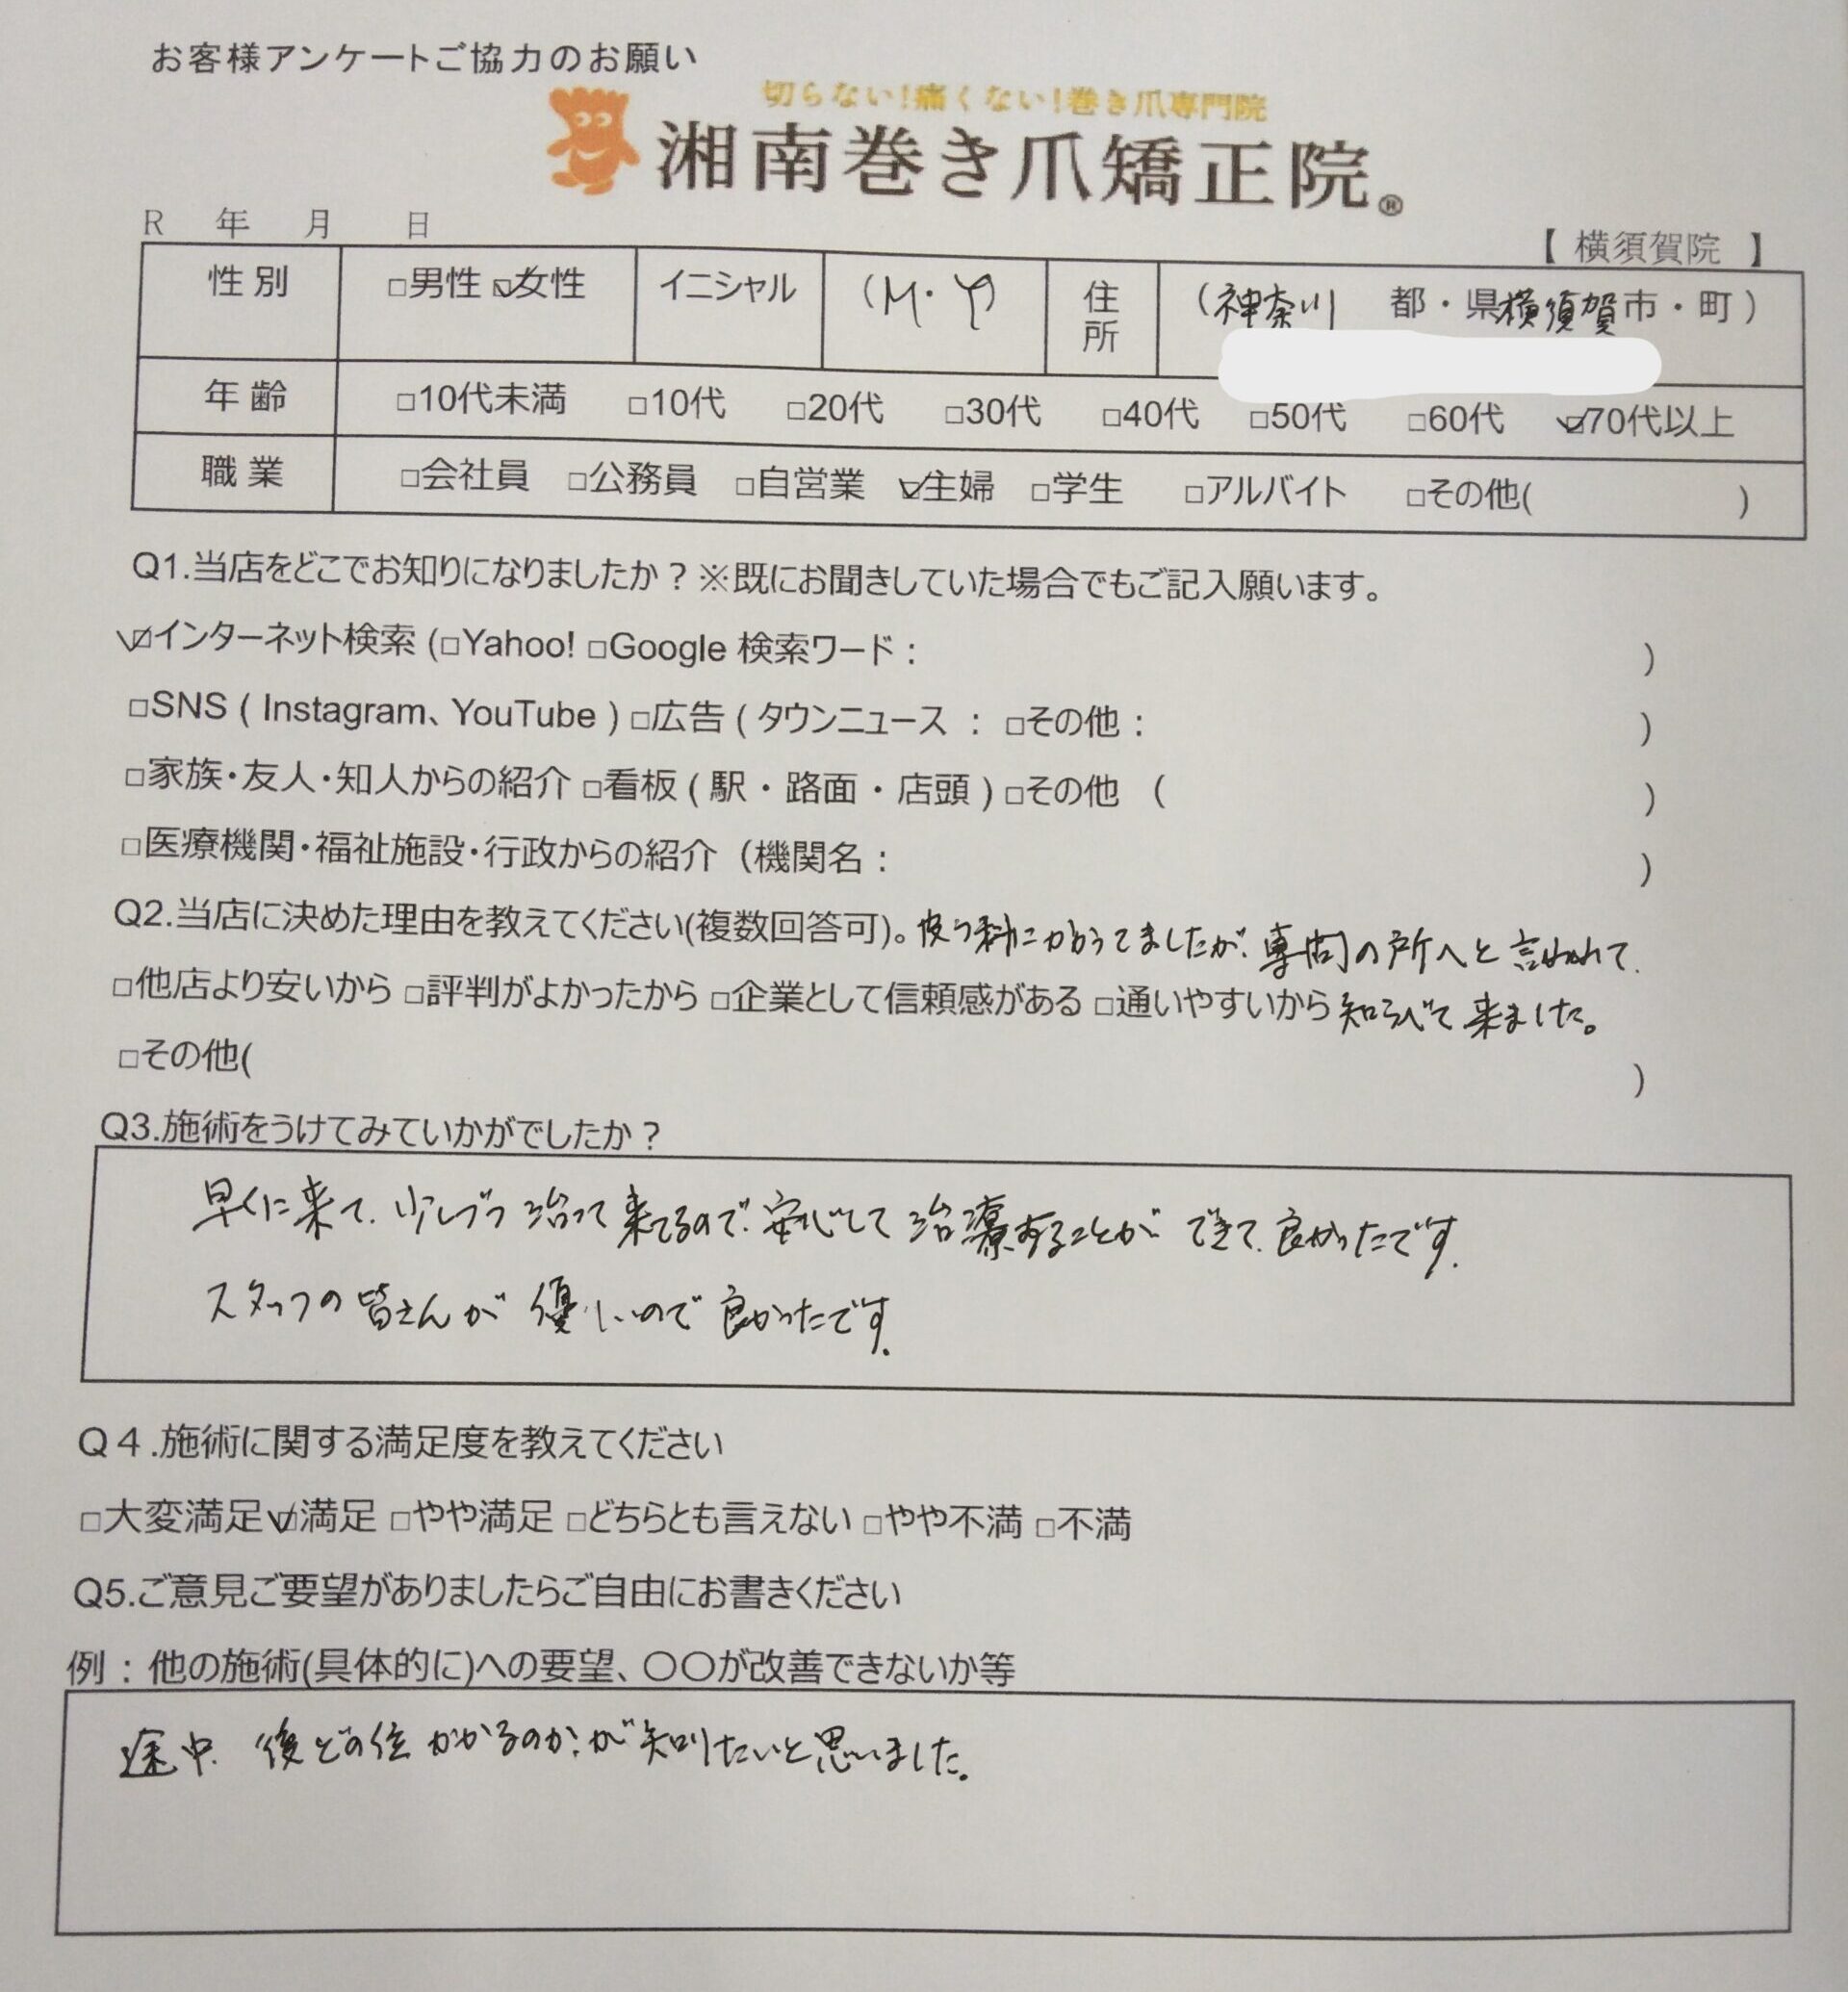 お客様アンケートご協力のお願い
切らない!痛くない!巻き爪専門院
湘南巻き爪矯正院®
R 年 月 日
【 横須賀院 】
性別 □男性 ☑女性 イニシャル (M・Y) 住所 (神奈川 都・県横須賀市・町)
年齢 □10代未満 □10代 □20代 □30代 □40代 □50代 □60代 ☑70代以上
職業 □会社員 □公務員 □自営業 ☑主婦 □学生 □アルバイト □その他( )
Q1.当店をどこでお知りになりましたか？※既にお聞きしていた場合でもご記入願います。
☑インターネット検索 (□Yahoo! □Google 検索ワード： )
□SNS ( Instagram、YouTube ) □広告 ( タウンニュース ： □その他： )
□家族・友人・知人からの紹介 □看板 ( 駅・路面・店頭 ) □その他 ( )
□医療機関・福祉施設・行政からの紹介（機関名： )
Q2.当店に決めた理由を教えてください(複数回答可)。皮フ科にかかってましたが、専門の所へと言われて、
□他店より安いから □評判がよかったから □企業として信頼感がある □通いやすいから て来ました。
□その他( )
Q3.施術をうけてみていかがでしたか？
早くに来て、少しづつ治って来てるので、安心して治療することができて、良かったです。
スタッフの皆さんが優しいので良かったです。
Q４.施術に関する満足度を教えてください
□大変満足 ☑満足 □やや満足 □どちらとも言えない □やや不満 □不満
Q5.ご意見ご要望がありましたらご自由にお書きください
例：他の施術(具体的に)への要望、〇〇が改善できないか等
途中、後どの位かかるのか、が知りたいと思いました。